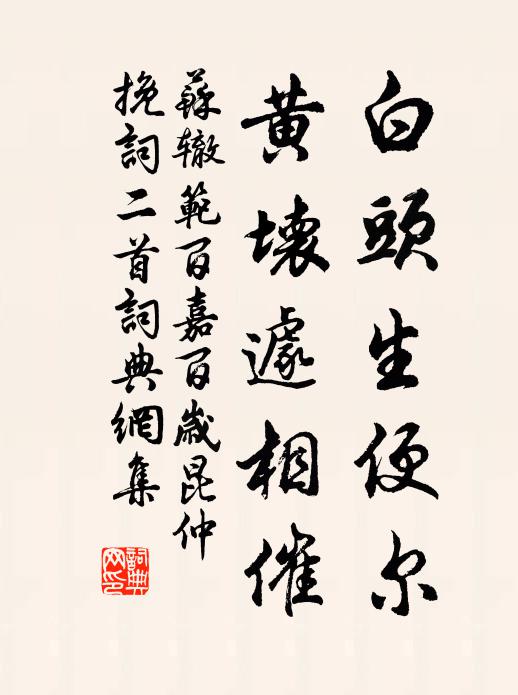 白頭生便尔
黃壞遽相催
蘇轍範百嘉百歲昆仲
挽詞二首詞典網集
詞典网印